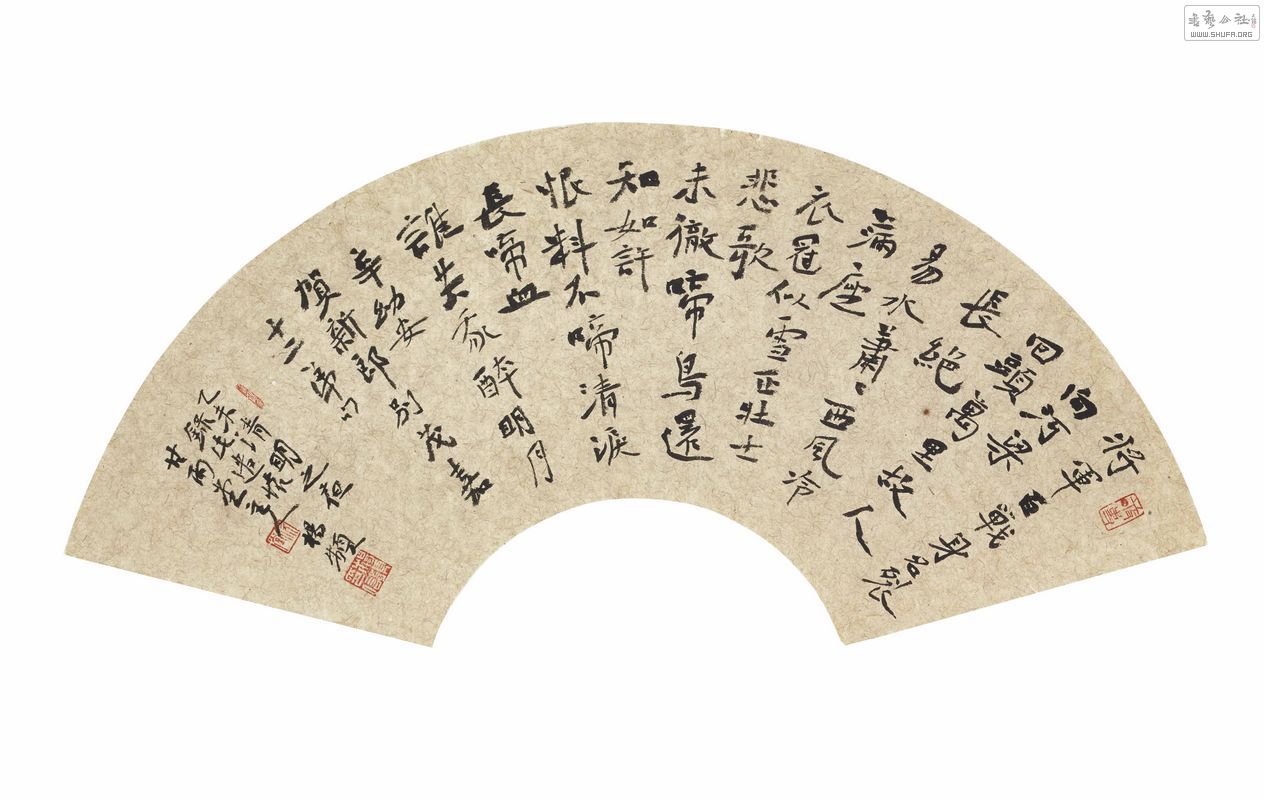 將軍百戰身名裂
向河梁
回頭萬里故人
長絕
易水蕭〻西風冷
滿座
衣冠似雪正壯士
悲歌
未徹啼鳥還
知如許
恨料不啼清淚
長啼血
誰共我醉明月
辛幼安
賀新郎別茂嘉
十二弟句
乙未清明之夜
錄此遣懷
雨堂主人
楊頻
WWW.SHUFA.ORG